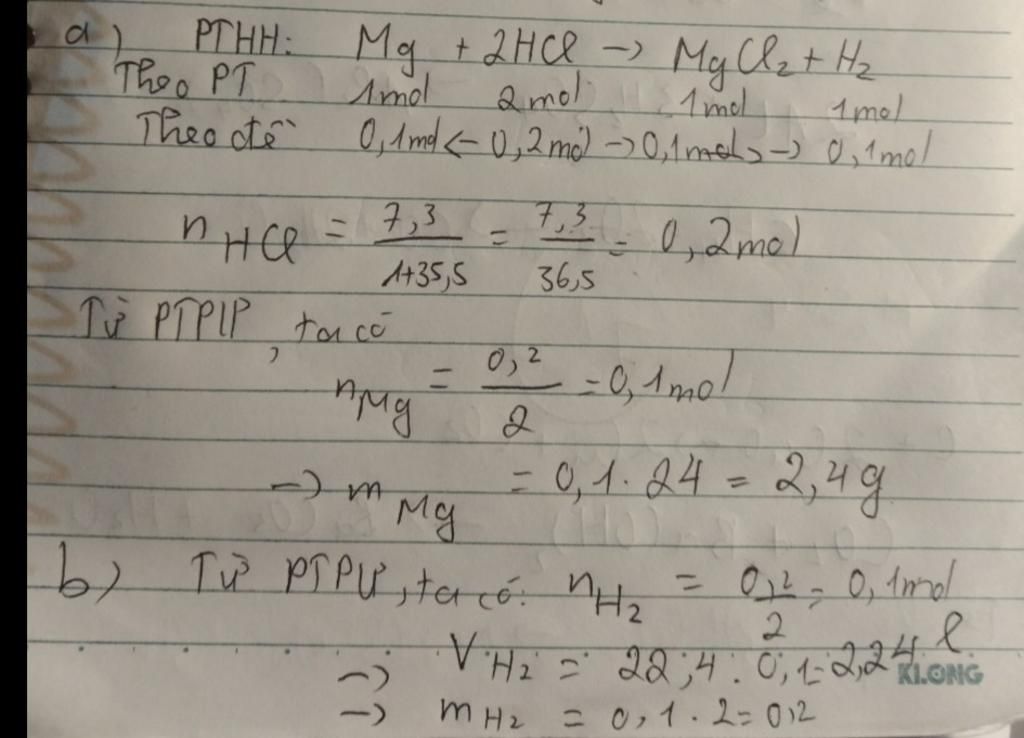 a) PTHH: Mg + 2HCl → MgCl₂ + H₂
Theo PT 1mol 2mol 1mol 1mol
Theo đề 0,1mol ← 0,2mol → 0,1mol → 0,1mol
n HCl = 7,3/1+35,5 = 7,3/36,5 = 0,2mol
Từ PTPƯ, ta có
nMg = 0,2/2 = 0,1mol
→ m Mg = 0,1.24 = 2,4g
b) Từ PTPƯ, ta có: nH₂ = 0,2/2 = 0,1mol
→ VH₂ = 22,4.0,1=2,24l
KLONG
→ mH₂ = 0,1.2=0,2